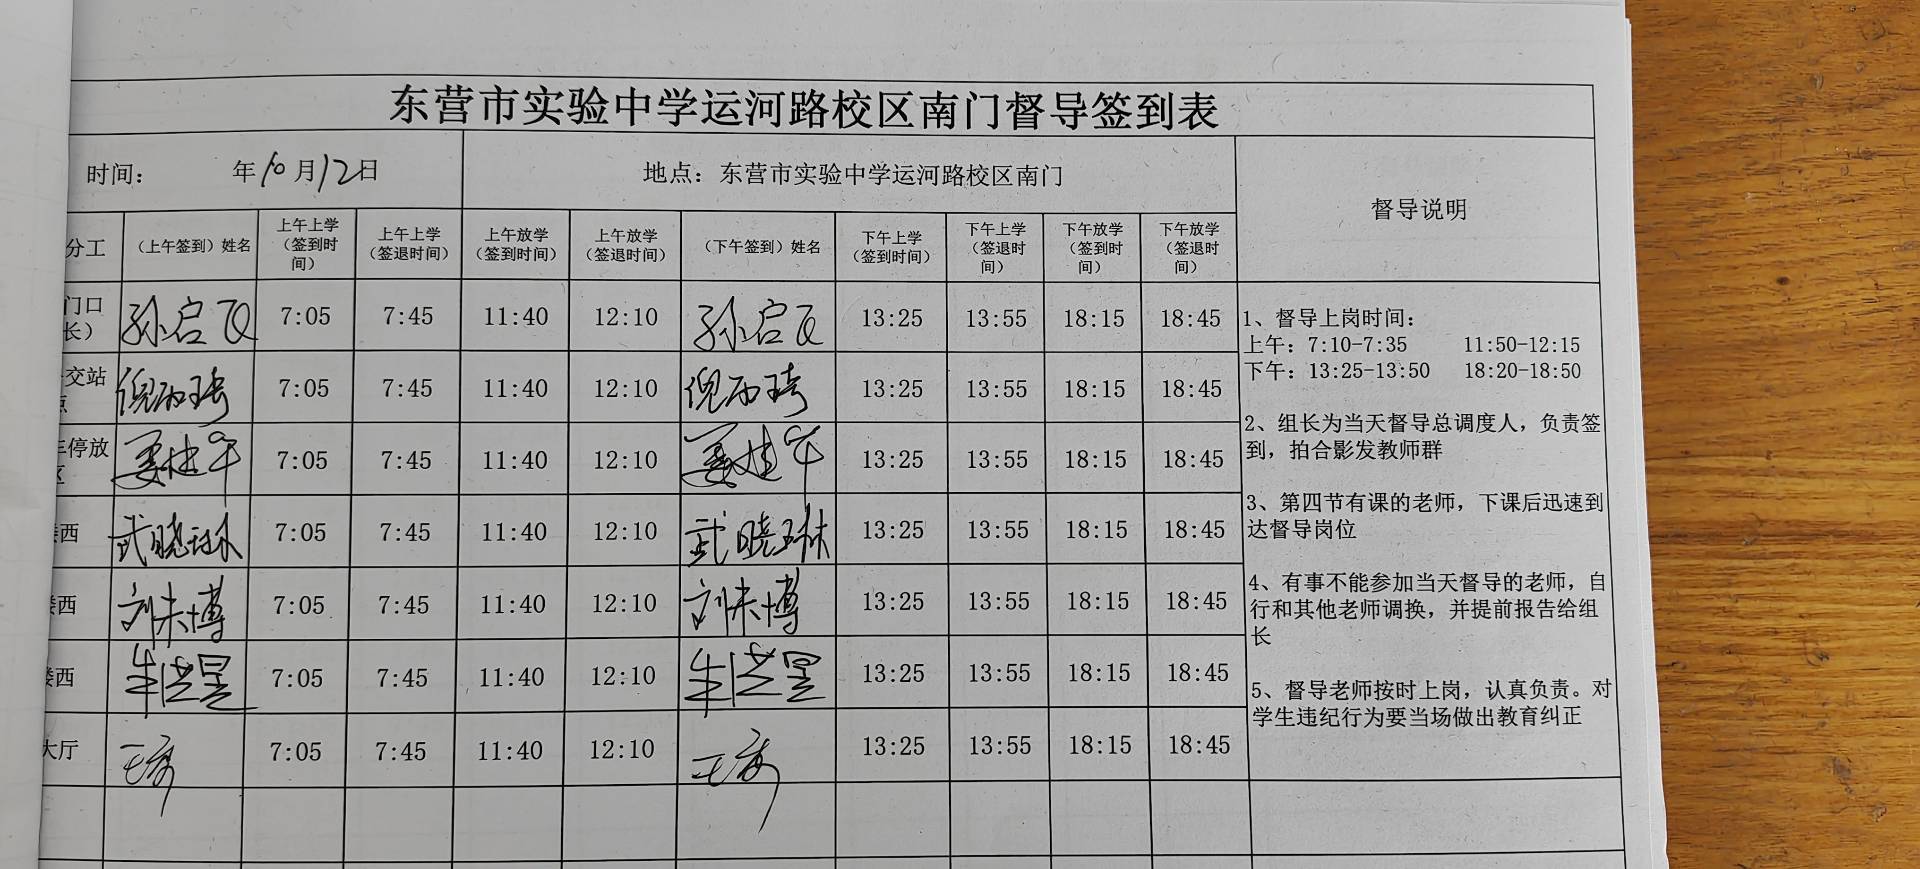 东营市实验中学运河路校区南门督导签到表
时间： 年10月12日 地点：东营市实验中学运河路校区南门 督导说明
分工 （上午签到）姓名 上午上学（签到时间） 上午上学（签退时间） 上午放学（签到时间） 上午放学（签退时间） （下午签到）姓名 下午上学（签到时间） 下午上学（签退时间） 下午放学（签到时间） 下午放学（签退时间）
门口长） 孙启 7:05 7:45 11:40 12:10 孙启 13:25 13:55 18:15 18:45
交站点 倪 7:05 7:45 11:40 12:10 倪 13:25 13:55 18:15 18:45
停放区 姜 7:05 7:45 11:40 12:10 姜 13:25 13:55 18:15 18:45
西 武晓琳 7:05 7:45 11:40 12:10 武晓琳 13:25 13:55 18:15 18:45
楼西 刘未博 7:05 7:45 11:40 12:10 刘未博 13:25 13:55 18:15 18:45
楼西 7:05 7:45 11:40 12:10 13:25 13:55 18:15 18:45
大厅 王 7:05 7:45 11:40 12:10 王 13:25 13:55 18:15 18:45
1、督导上岗时间：
上午：7:10-7:35 11:50-12:15
下午：13:25-13:50 18:20-18:50
2、组长为当天督导总调度人，负责签
到，拍合影发教师群
3、第四节有课的老师，下课后迅速到
达督导岗位
4、有事不能参加当天督导的老师，自
行和其他老师调换，并提前报告给组
长
5、督导老师按时上岗，认真负责。对
学生违纪行为要当场做出教育纠正